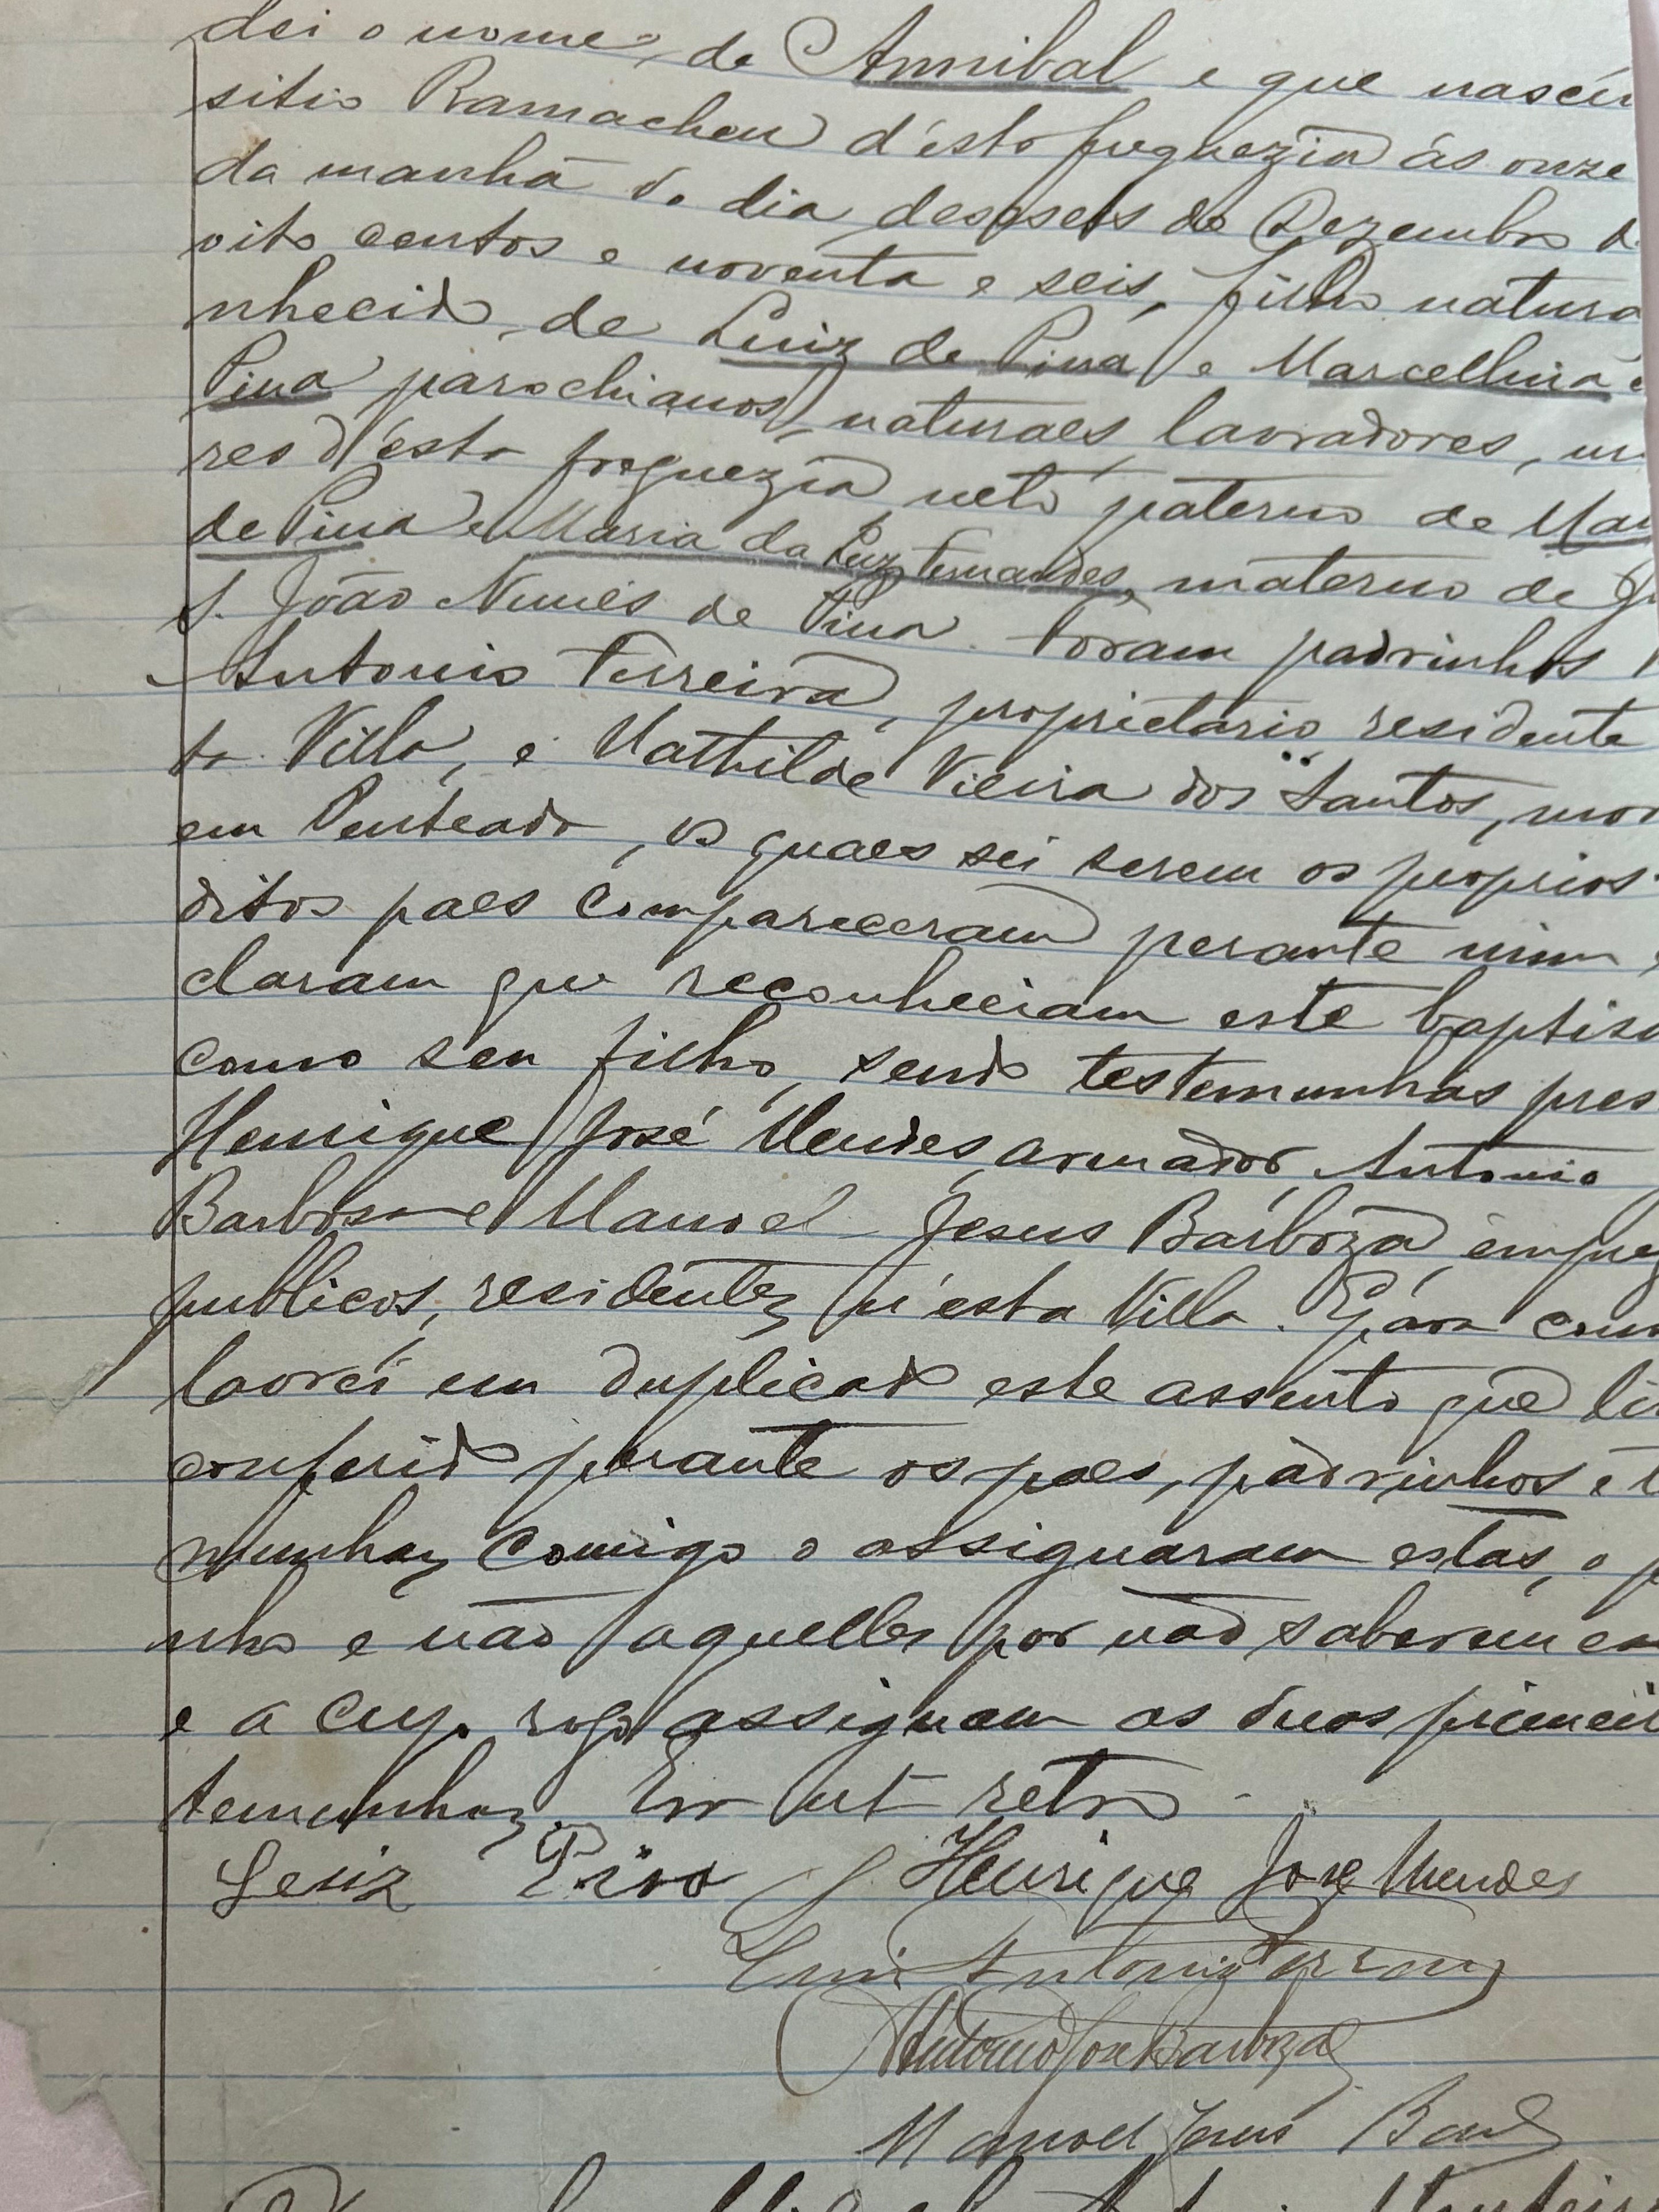 dei o nome de Annibal e que nasceu
sitio Ramacheu d'ésta freguezia ás onze
da manhã do dia desaseis de Dezembro d
oito centos e noventa e seis, filho natura
nhecido, de Luiz de Pina e Marcellina
Pina parochianos, naturaes, lavradores, m
res d'ésta freguezia, neto paterno de Ma
de Pina e Maria da Luz Fernandes, materno de
João Nunes de Pina. Foram padrinhos
Antonio Ferreira, proprietario, residente
ta Villa, e Mathilde Vieira dos Santos, mor
em Penteada, os quaes sei serem os proprios
ditos paes compareceram perante mim
claram que reconheciam este baptis
como seu filho, sendo testemunhas pres
Henrique José Mendes, armador, Antonio
Barbosa e Manoel Jesus Barboza, empre
publicos, residentes n'ésta Villa. E para cons
lavrei em duplicado este assento que li
conferido perante os paes, padrinhos e t
munhas comigo o assignaram estas, o p
nho e não aquelles por não saberem
e a cujo rogo assignam as duas primei
temunhas. Era ut retro.
Luiz Pina Henrique José Mendes
Luiz Antonio Ferreira
Antonio José Barboza
Manoel Jesus Barb